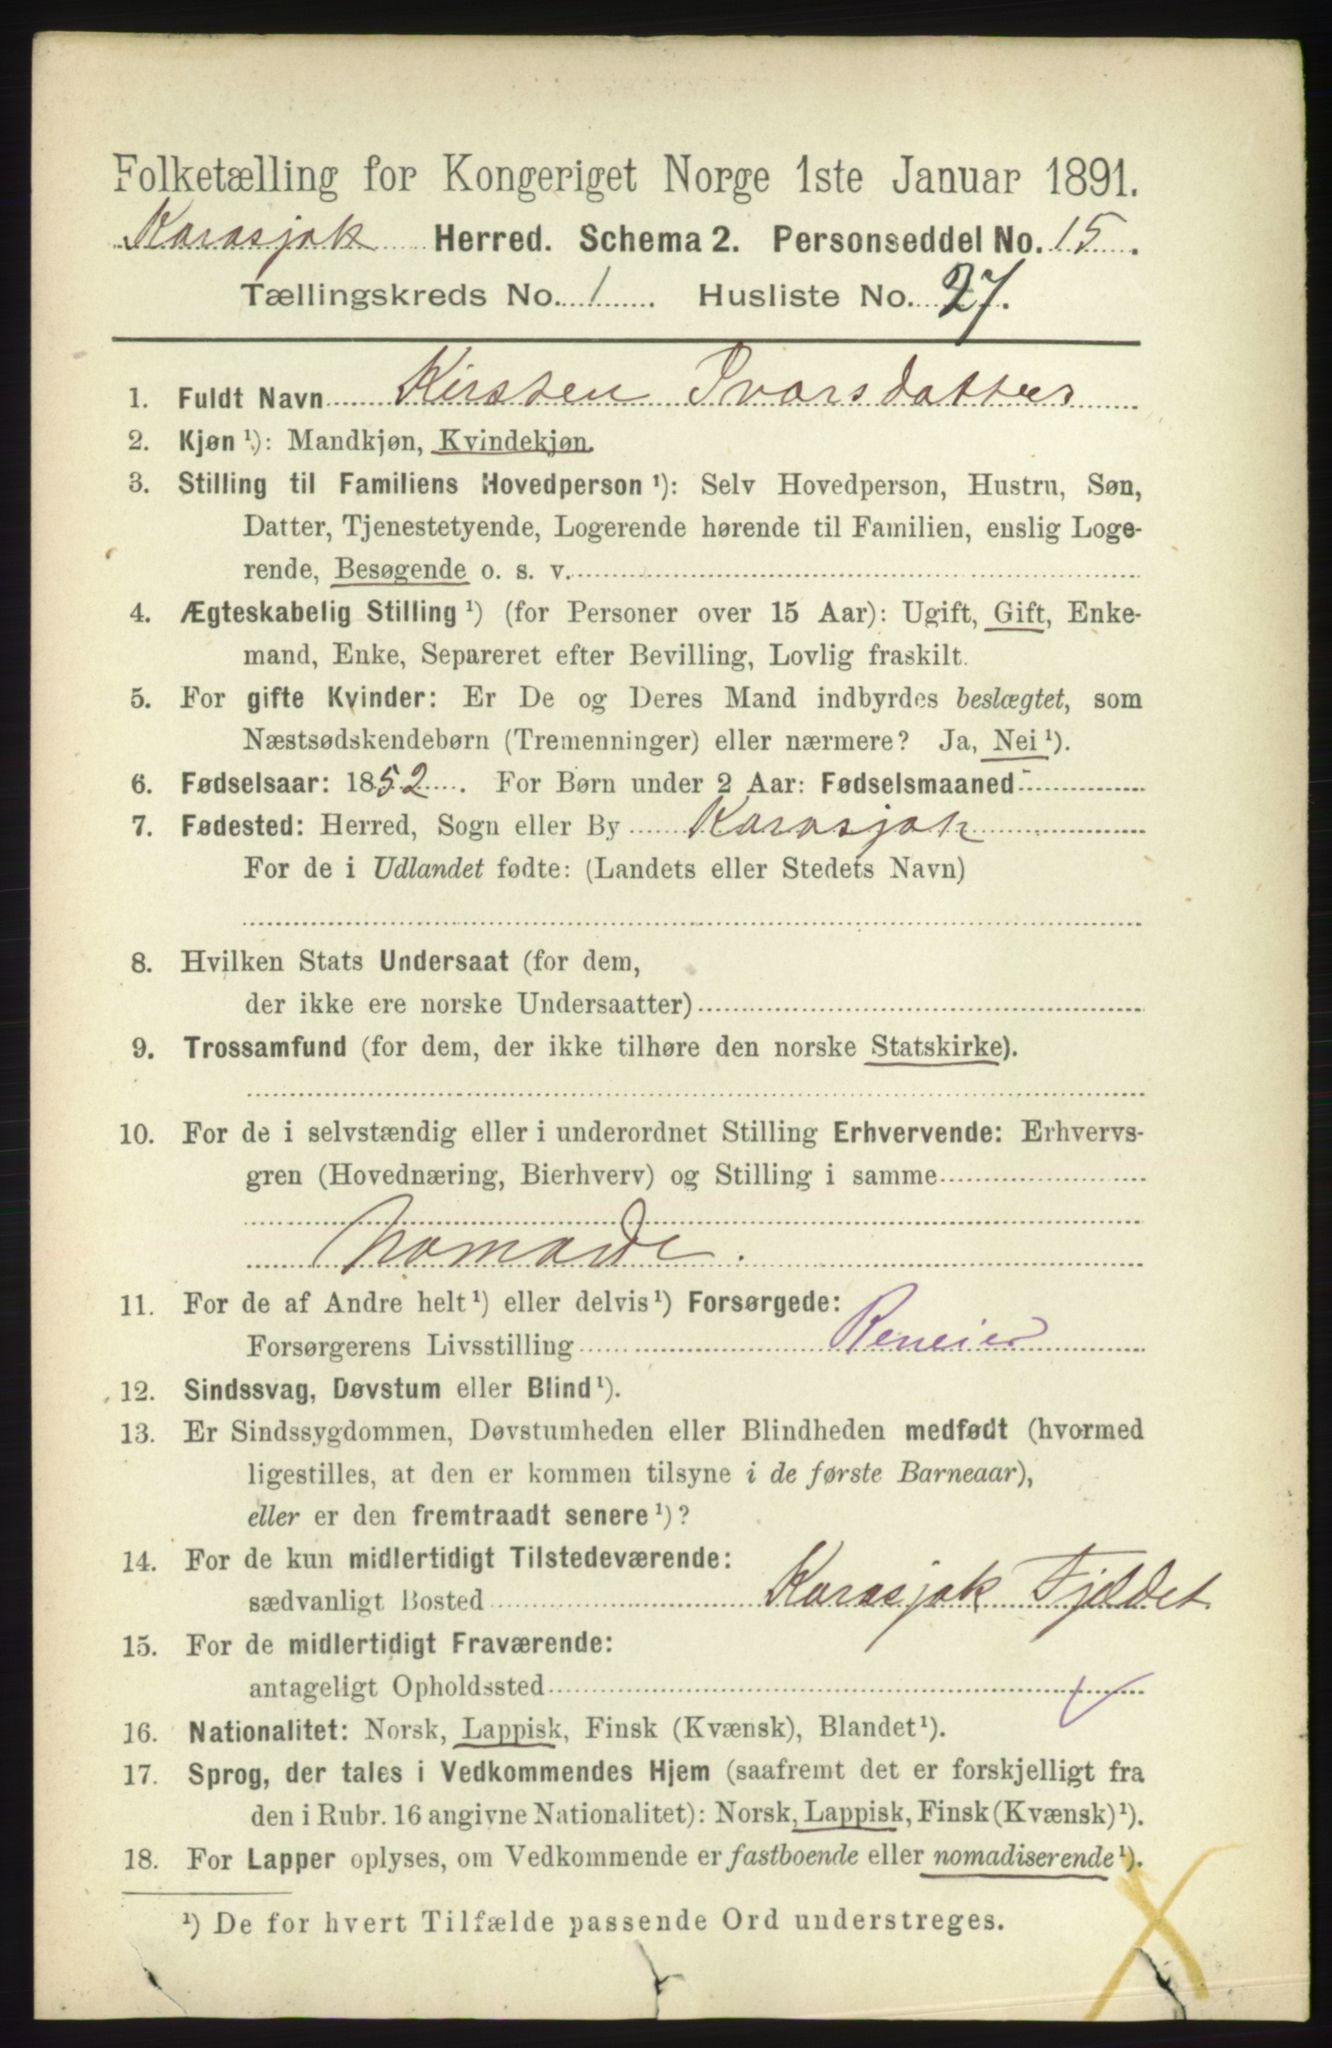 Folketælling for Kongeriget Norge 1ste Januar 1891.
Karasjok Herred. Schema 2. Personseddel No. 15.
Tællingskreds No. 1. Husliste No. 27.
1. Fuldt Navn Kirsten Ivarsdatter
2. Kjøn ¹): Mandkjøn, Kvindekjøn.
3. Stilling til Familiens Hovedperson ¹): Selv Hovedperson, Hustru, Søn,
Datter, Tjenestetyende, Logerende hørende til Familien, enslig Loge-
rende, Besøgende o. s. v.
4. Ægteskabelig Stilling ¹) (for Personer over 15 Aar): Ugift, Gift, Enke-
mand, Enke, Separeret efter Bevilling, Lovlig fraskilt.
5. For gifte Kvinder: Er De og Deres Mand indbyrdes beslægtet, som
Næstsødskendebørn (Tremenninger) eller nærmere? Ja, Nei ¹).
6. Fødselsaar: 1852. For Børn under 2 Aar: Fødselsmaaned -
7. Fødested: Herred, Sogn eller By Karasjok
For de i Udlandet fødte: (Landets eller Stedets Navn)
8. Hvilken Stats Undersaat (for dem,
der ikke ere norske Undersaatter)
9. Trossamfund (for dem, der ikke tilhøre den norske Statskirke).
10. For de i selvstændig eller i underordnet Stilling Erhvervende: Erhvervs-
gren (Hovednæring, Bierhverv) og Stilling i samme
Nomade.
11. For de af Andre helt ¹) eller delvis ¹) Forsørgede:
Forsørgerens Livsstilling Reneier
12. Sindssvag, Døvstum eller Blind ¹).
13. Er Sindssygdommen, Døvstumheden eller Blindheden medfødt (hvormed
ligestilles, at den er kommen tilsyne i de første Barneaar),
eller er den fremtraadt senere ¹)?
14. For de kun midlertidigt Tilstedeværende:
sædvanligt Bosted Karasjok Fjeldet
15. For de midlertidigt Fraværende:
antageligt Opholdssted
16. Nationalitet: Norsk, Lappisk, Finsk (Kvænsk), Blandet ¹).
17. Sprog, der tales i Vedkommendes Hjem (saafremt det er forskjelligt fra
den i Rubr. 16 angivne Nationalitet): Norsk, Lappisk, Finsk (Kvænsk) ¹).
18. For Lapper oplyses, om Vedkommende er fastboende eller nomadiserende ¹).
¹) De for hvert Tilfælde passende Ord understreges.